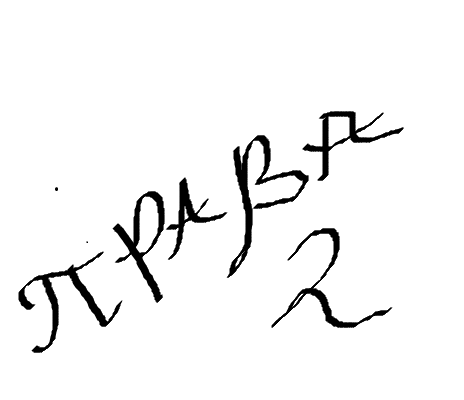 правда
2